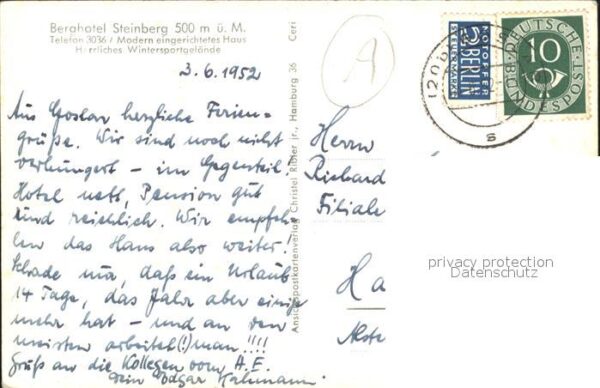 Berghotel Steinberg 500 m ü. M.
Telefon 3036 / Modern eingerichtetes Haus
Herrliches Wintersportgelände
3.6.1952
Aus Goslar herzliche Ferien-
grüße. Wir sind noch nicht
verhungert – im Gegenteil
Hotel nett, Pension gut
und reichlich. Wir empfeh-
len das Haus also weiter!
Schade nur, daß ein Urlaub
14 Tage, das Jahr aber einige
mehr hat – und an den
meisten arbeitet(!) man!!!!
Gruß an die Kollegen vom A.E.
Dein Edgar
Ansichtspostkartenverlag Christel Ritter jr., Hamburg 36
Ceri
A
NOTOPFER
2 BERLIN
STEUERMARKE
DEUTSCHE
BUNDESPOST
10
(20b)
s
Herrn
Richard
Filiale
Ha
Alste
privacy protection
Datenschutz